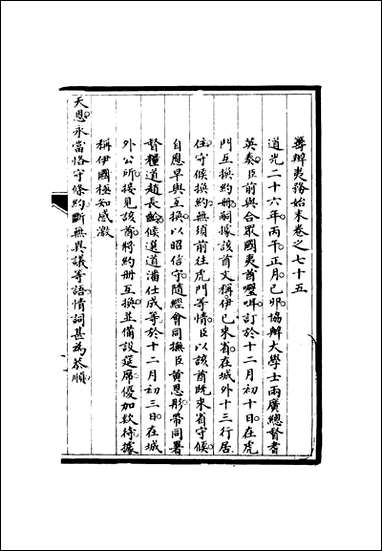 籌辦夷務始末卷之七十五
道光二十六年丙午正月己卯協辦大學士兩廣總督耆
英奏臣前與合眾國夷酋㗷㖿訂於十二月初十日在虎
門互換約冊嗣據該酋文稱伊已來省在城外十三行居
住守候換約無須前往虎門等情臣以該酋既來省守候
自應早與互換以昭信守隨經會同撫臣黃恩彤帶同署
督糧道趙長齡候選道潘仕成等於十二月初三日在城
外公所接見該酋將約冊互換並備設筵席優加款待據
稱伊國極知感激
天恩永當恪守條約斷無異議等語情詞甚為恭順